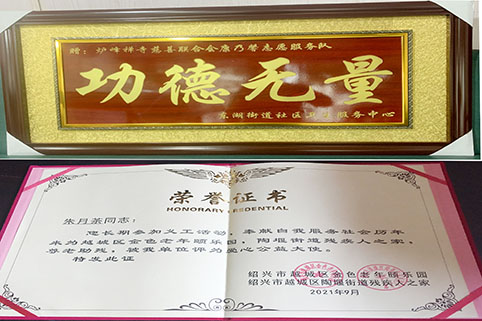 赠：炉峰禅寺慈善联合会康乃馨志愿服务队
功德无量
东湖街道社区卫生服务中心
荣誉证书
HONORARY CREDENTIAL
同志：
您长期参加义工活动，奉献自我服务社会历年
来为越城区金色老年颐乐园，陶堰街道残疾人之家，
尊老助残，被我单位评为爱心公益大使。
特发此证
绍兴市越城区金色老年颐乐园
绍兴市越城区陶堰街道残疾人之家
2021年9月